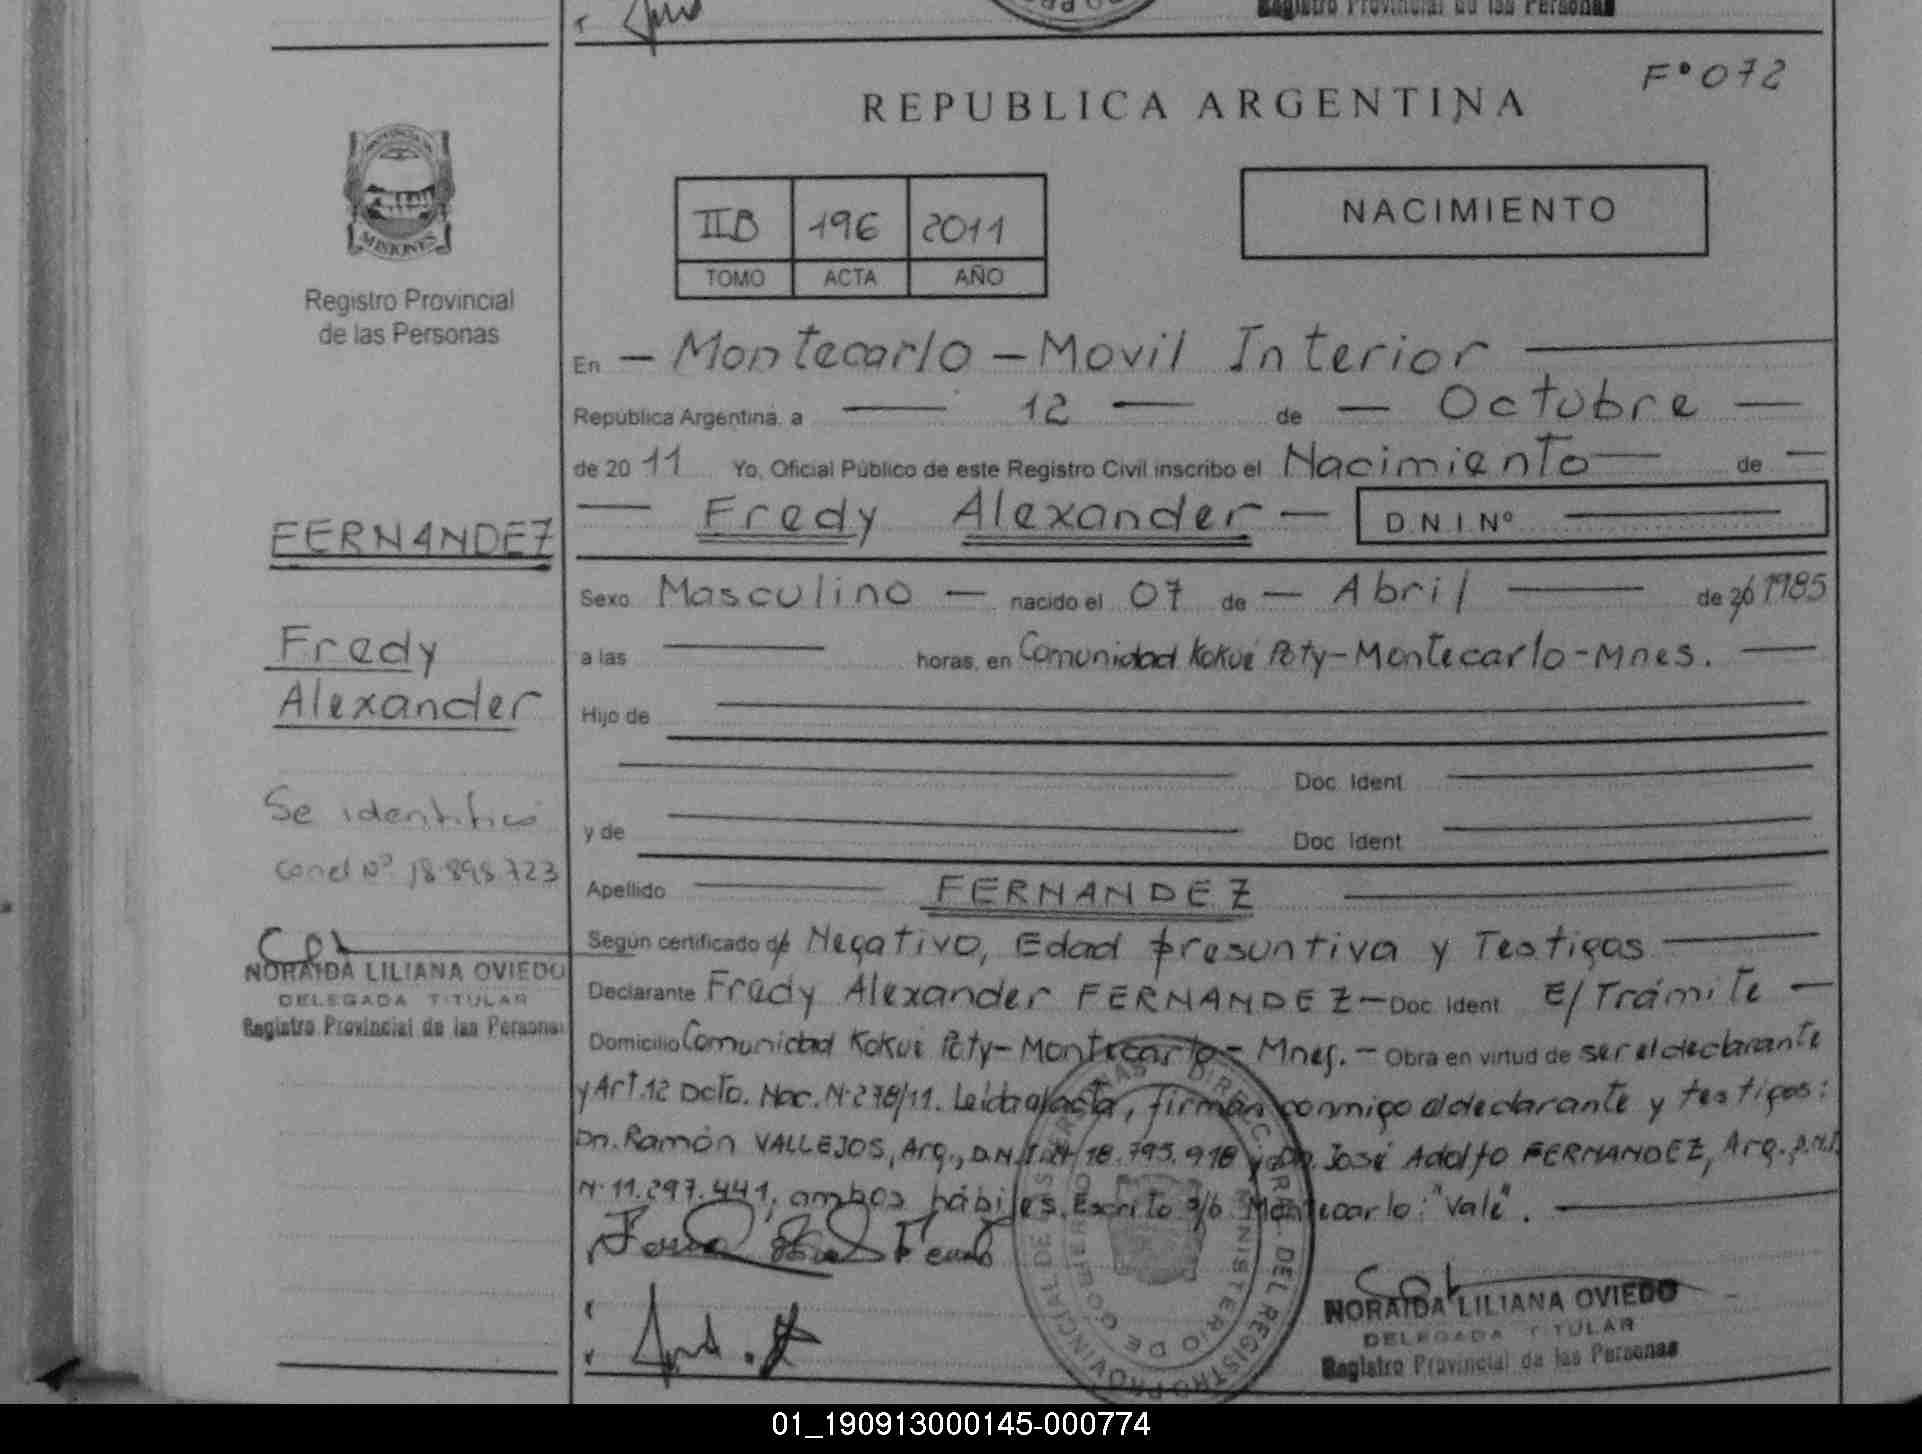 Registro Provincial de las Personas
F° 072
REPUBLICA ARGENTINA
MISIONES
Registro Provincial
de las Personas
IIB 196 2011
TOMO ACTA AÑO
NACIMIENTO
En — Montecarlo — Movil Interior
República Argentina, a — 12 — de — Octubre —
de 20 11 Yo, Oficial Público de este Registro Civil inscribo el Nacimiento — de —
— Fredy Alexander — D.N.I. Nº
FERNANDEZ
Fredy
Alexander
Se identificó
con el Nº 18.898.723
NORAIDA LILIANA OVIEDO
DELEGADA TITULAR
Registro Provincial de las Personas
Sexo Masculino — nacido el 07 de — Abril — de 20 1985
a las — horas, en Comunidad Kokue Poty-Montecarlo-Mnes. —
Hijo de
Doc. Ident
y de Doc. Ident
Apellido — FERNANDEZ
Según certificado de Negativo, Edad presuntiva y Testigos —
Declarante Fredy Alexander FERNANDEZ — Doc. Ident. E/Trámite —
Domicilio Comunidad Kokue Poty-Montecarlo- Mnes. — Obra en virtud de ser el declarante
y Art.12 Dcto. Nac. N° 278/11. Leída el acta, firman conmigo el declarante y testigos:
Dn. Ramón VALLEJOS, Arg., D.N.I. N° 18.795.918 y Dn. José Adolfo FERNANDEZ, Arg. D.N.I.
N° 11.297.441, ambos hábiles. Escrito s/b Montecarlo: "Vale". —
NORAIDA LILIANA OVIEDO
DELEGADA TITULAR
Registro Provincial de las Personas
01_190913000145-000774